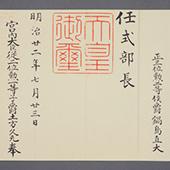 正三位勲一等侯爵鍋島直大
任式部長
天皇御璽
明治廿二年七月廿三日
宮内大臣從二位勲一等子爵土方久元奉